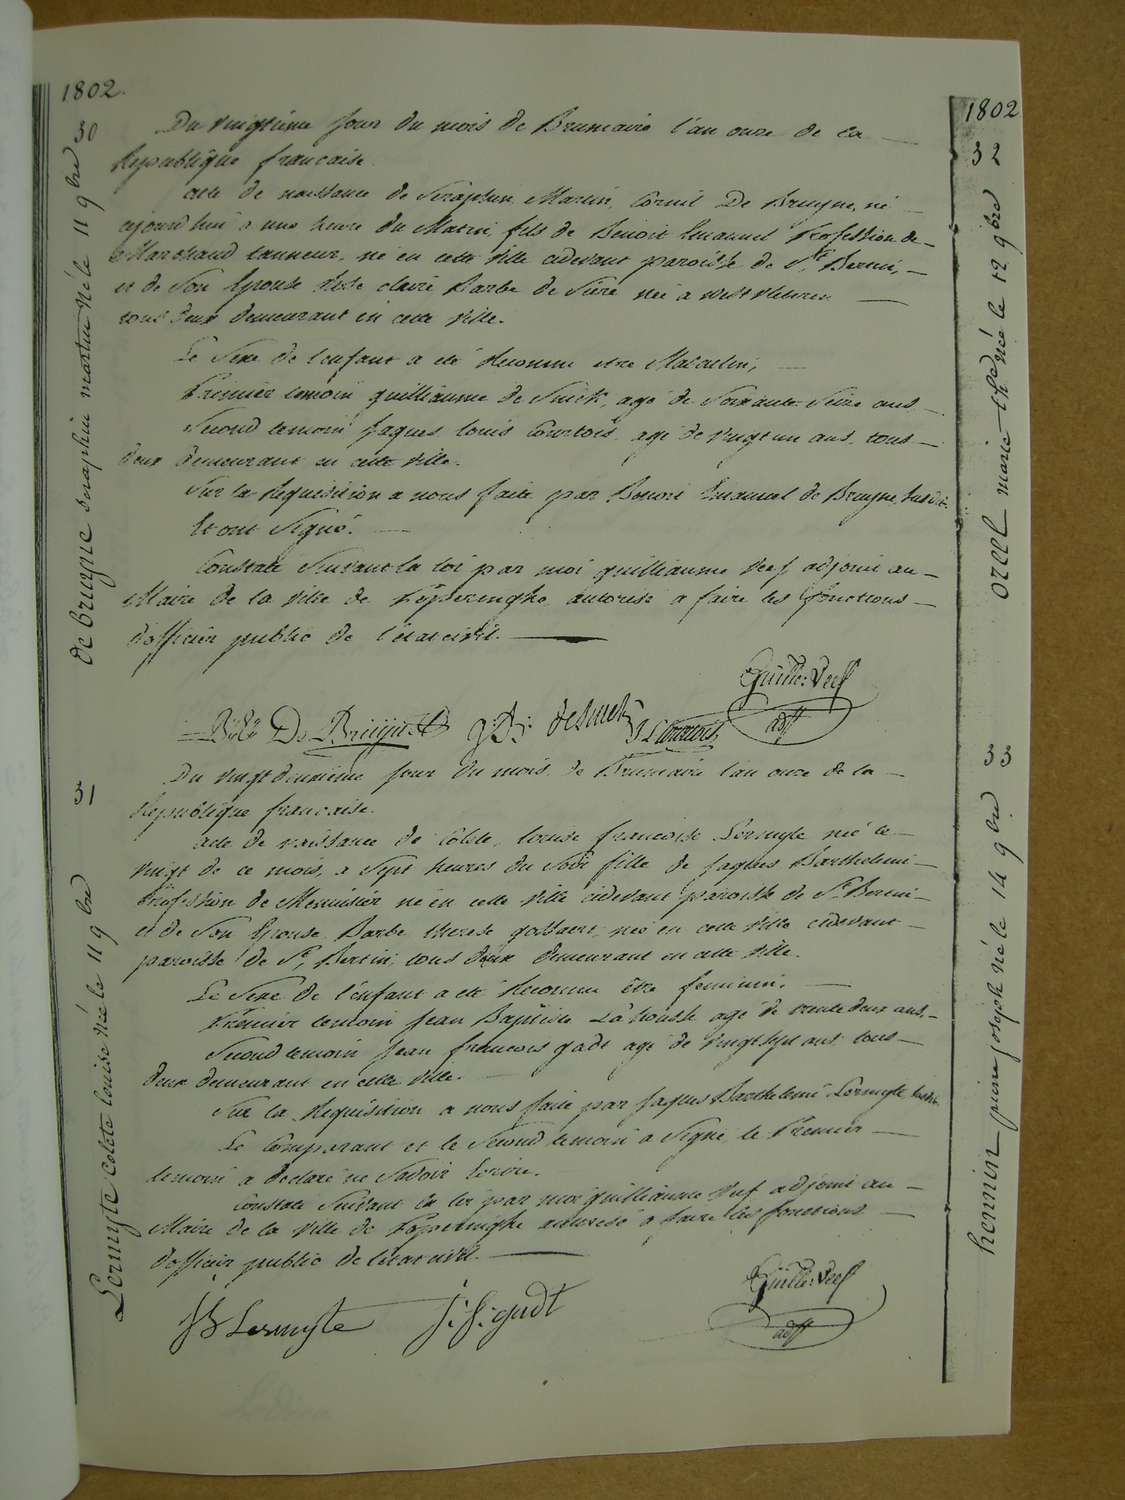 1802.
30
de bruyne seraphin martin né le 11 9bre
Du vingtieme jour du mois de Brumaire l'an onze de la
Republique francaise.
acte de naissance de Seraphin Martin Corneil De Bruyne, né
aujourd'hui a une heure du Matin, fils de Benoit Emanuel Profession de
Marchand tanneur, né en cette ville cidevant paroisse de St. Bertin,
et de Son Epouse claire Barbe de née a westvleteren
tous deux demeurant en cette ville.
Le Sexe de l'enfant a eté Reconnu etre Masculin,
Premier temoin guilliaume de agé de Soixante Seize ans
Second temoin Jaques louis Courtois, agé de vingt un ans, tous
deux demeurant en cette ville.
Sur la Requisition a nous faite par Benoit Emanuel de Bruyne, susdit
Et ont Signé.
Constaté Suivant la loi par moi guilliaume Verf adjoint au
Maire de la ville de Poperinghe, autorisé a faire les fonctions
d'officier public de l'etat civil.
Guille: Verf
adjt
De Bruyne desmet
J L Courtois
31
Lermyte Colete louise née le 11 9bre
Du vingt deuxieme jour du mois de Brumaire l'an onze de la
Republique francaise.
acte de naissance de Colete, louise francoise Lermyte né le
vingt de ce mois, a Sept heures du Soir fille de Jaques Barthelemi
Profession de Menuisier né en cette ville cidevant paroisse de St. Bertin
et de Son Epouse Barbe therese gossaert, née en cette ville cidevant
paroisse de St. Bertin, tous deux demeurant en cette ville.
Le Sexe de l'enfant a eté Reconnu être feminin.
Premier temoin Jean Baptiste agé de trente deux ans,
Second temoin Jean francois gadt agé de vingt Sept ans tous
deux demeurant en cette ville.
Sur la Requisition a nous faite par Jaques Barthelemi Lermyte, susdit
Le Comparant et le Second temoin a Signé le Premier
temoin a declaré ne Savoir Ecrire.
Constaté Suivant la loi par moi guilliaume Verf adjoint au
Maire de la ville de Poperinghe autorisé a faire les fonctions
d'officier public de l'etat civil.
Guille: Verf
adjt
JB Lermyte J: f: gadt
1802
32
oreel marie thed née le 12 9bre
33
hennin pierre joseph né le 14 9bre